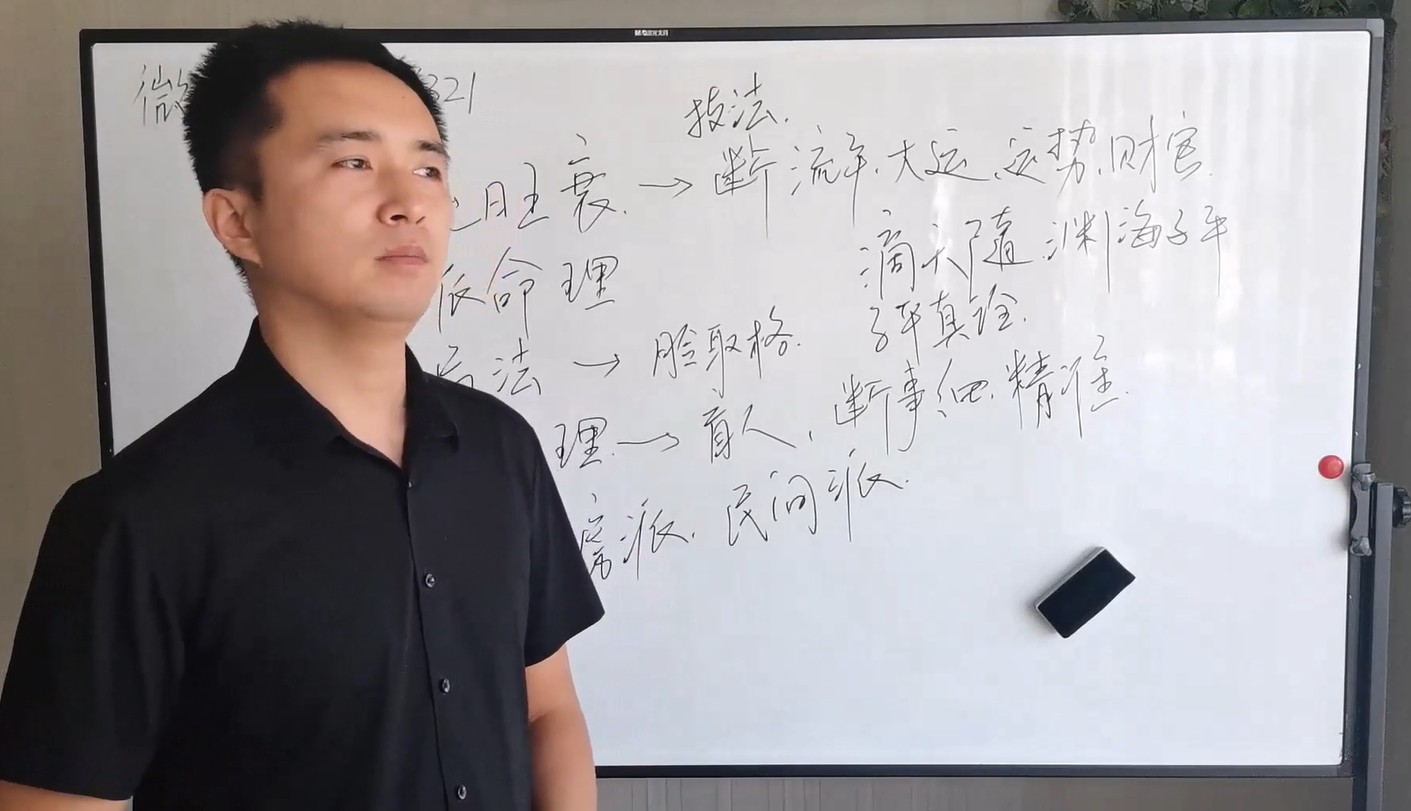 微 321
技法.
旺衰. → 断流年、大运、运势、财官.
滴天随 渊海子平
派命理
子平真诠.
法 → 脸取格.
理 → 盲人, 断事细. 精准.
派. 民间派.